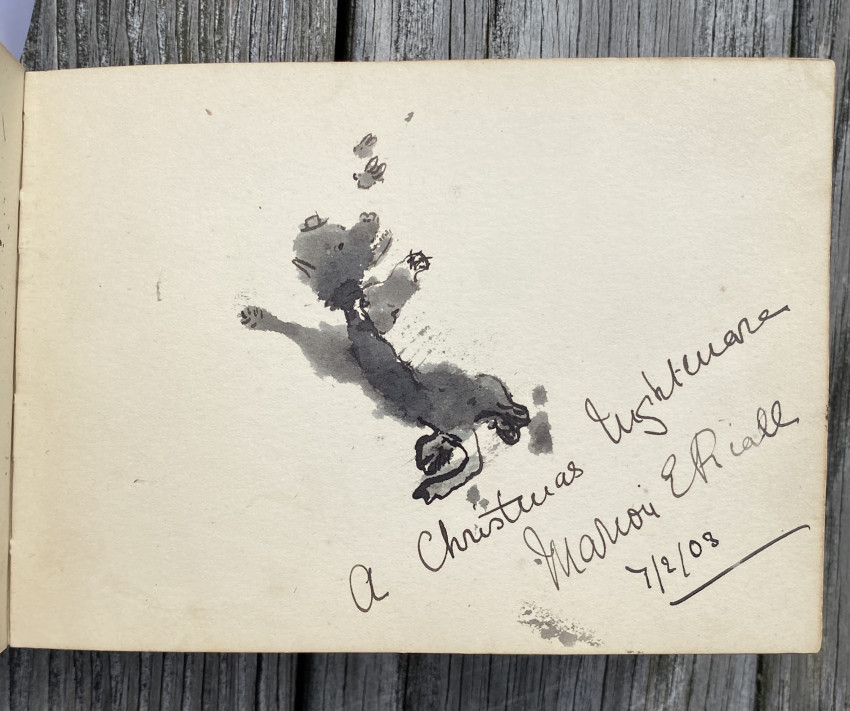 A Christmas Nightmare
Marion E Riall
7/2/08